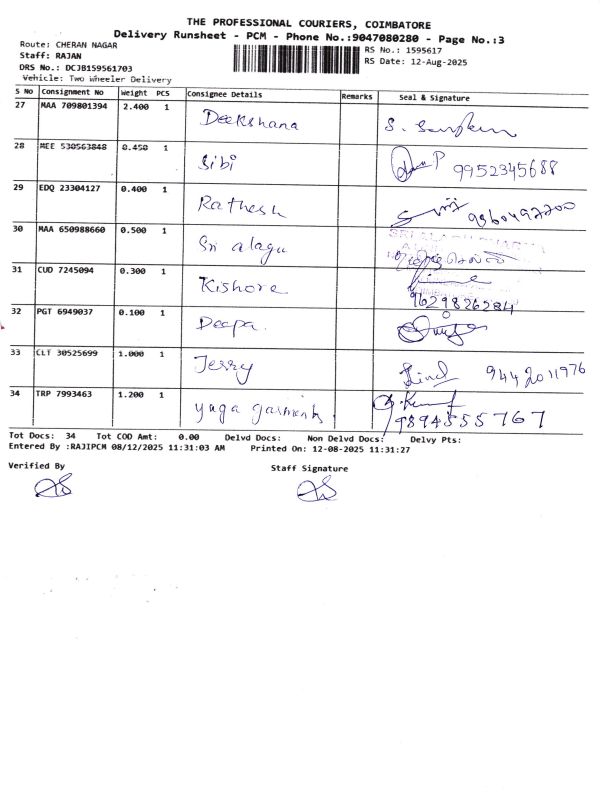 THE PROFESSIONAL COURIERS, COIMBATORE
Delivery Runsheet - PCM - Phone No.:9047080280 - Page No.:3
Route: CHERAN NAGAR
Staff: RAJAN
DRS No.: DCJB159561703
Vehicle: Two Wheeler Delivery
RS No.: 1595617
RS Date: 12-Aug-2025
S No Consignment No Weight PCS Consignee Details Remarks Seal & Signature
27 MAA 709801394 2.400 1 Deekshana
28 MEE 530563848 0.450 1 Sibi 9952345688
29 EDQ 23304127 0.400 1 Rathesh
30 MAA 650988660 0.500 1 Sri alagu
31 CUD 7245094 0.300 1 Kishore 9629826284
32 PGT 6949037 0.100 1 Deepa.
33 CLT 30525699 1.000 1 Jerry 9442011976
34 TRP 7993463 1.200 1 yuga garments 9894555767
Tot Docs: 34 Tot COD Amt: 0.00 Delvd Docs: Non Delvd Docs: Delvy Pts:
Entered By :RAJIPCM 08/12/2025 11:31:03 AM Printed On: 12-08-2025 11:31:27
Verified By Staff Signature